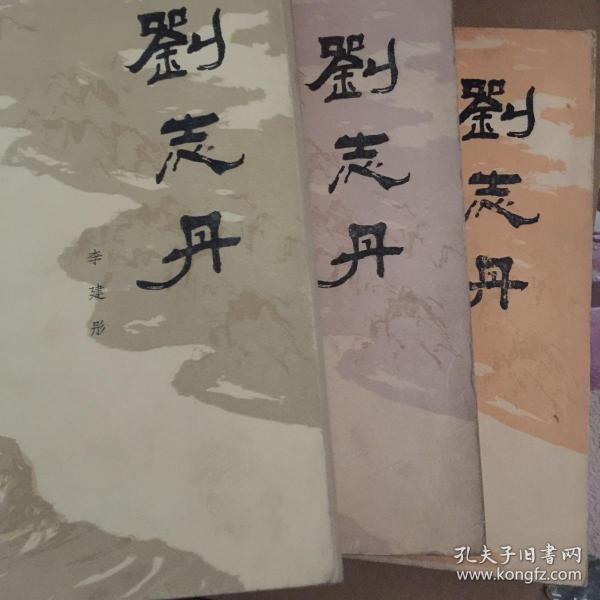 劉志丹
李建彤
劉志丹
劉志丹
孔夫子旧書网
www.kongfz.com